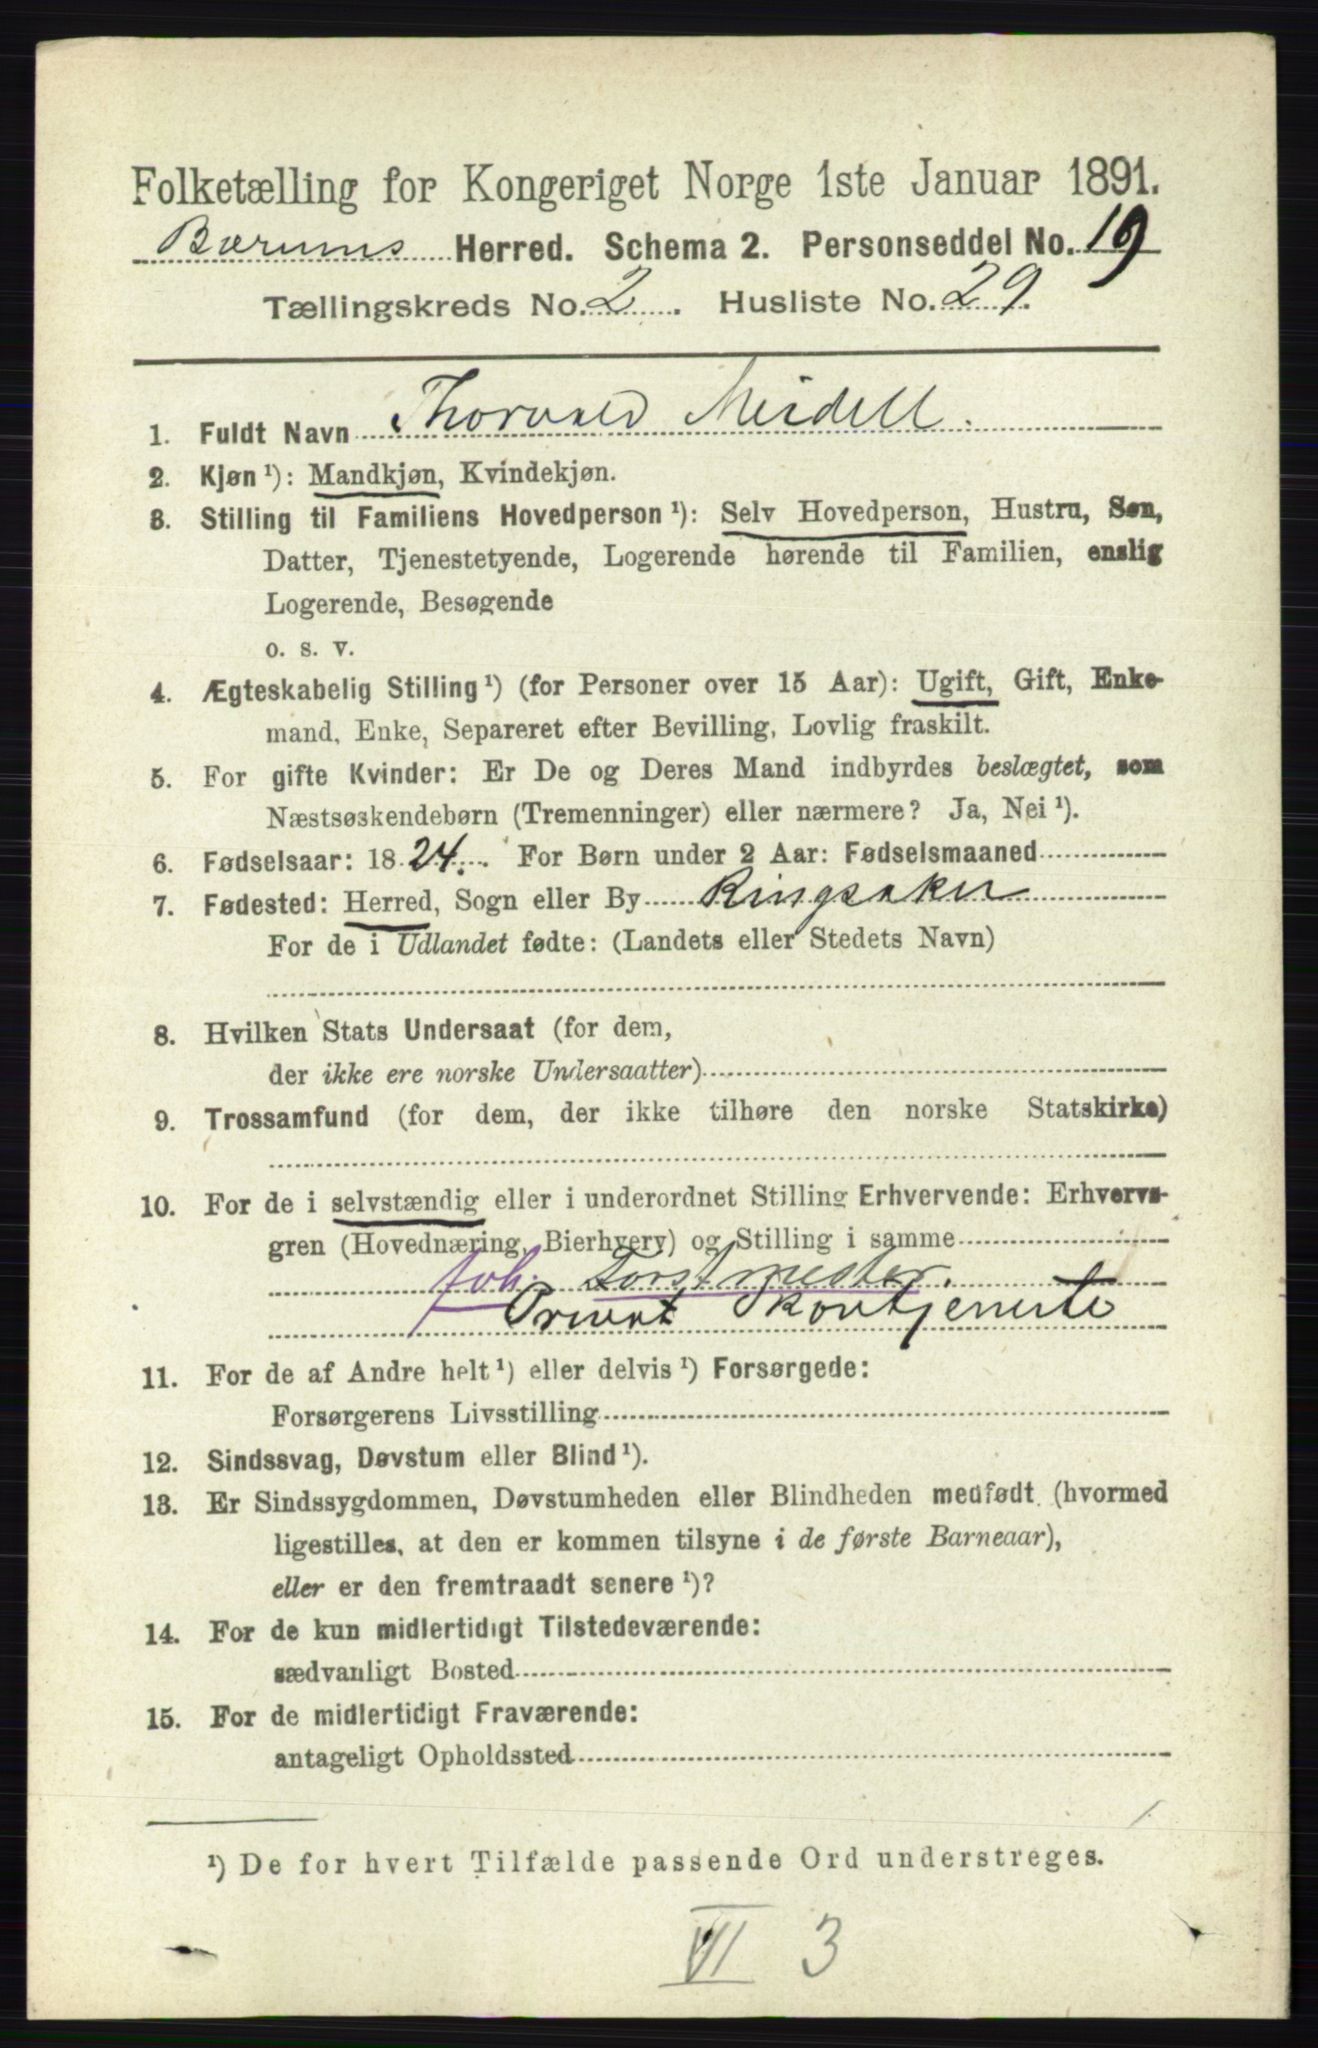 Folketælling for Kongeriget Norge 1ste Januar 1891.
Bærums Herred. Schema 2. Personseddel No. 19
Tællingskreds No. 2. Husliste No. 29.
1. Fuldt Navn Thorvald Meidell.
2. Kjøn ¹): Mandkjøn, Kvindekjøn.
3. Stilling til Familiens Hovedperson ¹): Selv Hovedperson, Hustru, Søn,
Datter, Tjenestetyende, Logerende hørende til Familien, enslig
Logerende, Besøgende
o. s. v.
4. Ægteskabelig Stilling ¹) (for Personer over 15 Aar): Ugift, Gift, Enke-
mand, Enke, Separeret efter Bevilling, Lovlig fraskilt.
5. For gifte Kvinder: Er De og Deres Mand indbyrdes beslægtet, som
Næstsøskendebørn (Tremenninger) eller nærmere? Ja, Nei ¹).
6. Fødselsaar: 1824. For Børn under 2 Aar: Fødselsmaaned
7. Fødested: Herred, Sogn eller By Ringsaker
For de i Udlandet fødte: (Landets eller Stedets Navn)
8. Hvilken Stats Undersaat (for dem,
der ikke ere norske Undersaatter)
9. Trossamfund (for dem, der ikke tilhøre den norske Statskirke)
10. For de i selvstændig eller i underordnet Stilling Erhvervende: Erhvervs-
gren (Hovednæring, Bierhverv) og Stilling i samme
Forstmester.
Privat Skovtjeneste
11. For de af Andre helt ¹) eller delvis ¹) Forsørgede:
Forsørgerens Livsstilling
12. Sindssvag, Døvstum eller Blind ¹).
13. Er Sindssygdommen, Døvstumheden eller Blindheden medfødt (hvormed
ligestilles, at den er kommen tilsyne i de første Barneaar),
eller er den fremtraadt senere ¹)?
14. For de kun midlertidigt Tilstedeværende:
sædvanligt Bosted
15. For de midlertidigt Fraværende:
antageligt Opholdssted
¹) De for hvert Tilfælde passende Ord understreges.
VI 3